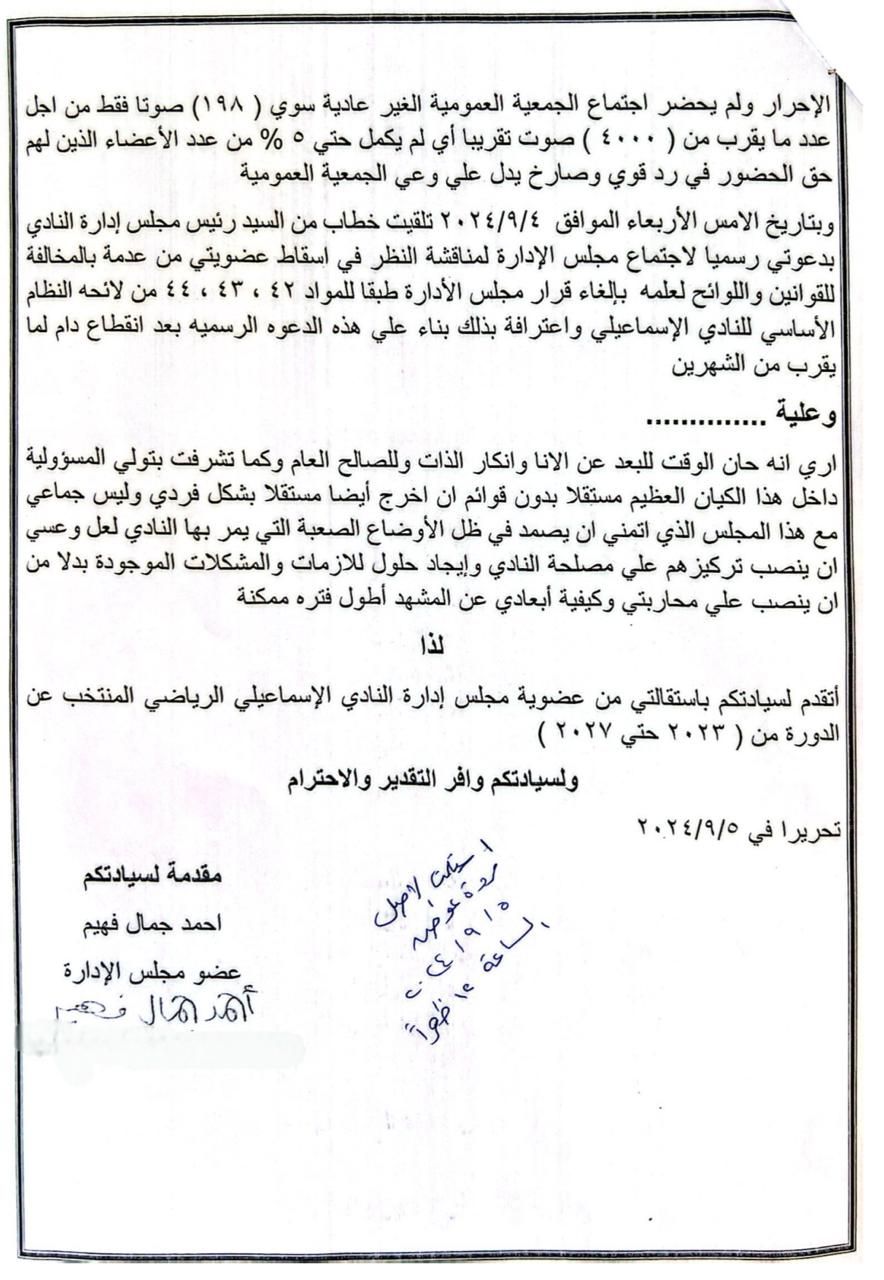 الإحرار ولم يحضر اجتماع الجمعية العمومية الغير عادية سوي ( ١٩٨) صوتا فقط من اجل
عدد ما يقرب من ( ٤٠٠٠ ) صوت تقريبا أي لم يكمل حتي ٥ % من عدد الأعضاء الذين لهم
حق الحضور في رد قوي وصارخ يدل علي وعي الجمعية العمومية
وبتاريخ الامس الأربعاء الموافق ٢٠٢٤/٩/٤ تلقيت خطاب من السيد رئيس مجلس إدارة النادي
بدعوتي رسميا لاجتماع مجلس الإدارة لمناقشة النظر في اسقاط عضويتي من عدمة بالمخالفة
للقوانين واللوائح لعلمه بإلغاء قرار مجلس الأدارة طبقا للمواد ٤٢ ، ٤٣ ، ٤٤ من لائحه النظام
الأساسي للنادي الإسماعيلي واعترافة بذلك بناء علي هذه الدعوه الرسميه بعد انقطاع دام لما
يقرب من الشهرين
وعلية ..............
اري انه حان الوقت للبعد عن الانا وانكار الذات وللصالح العام وكما تشرفت بتولي المسؤولية
داخل هذا الكيان العظيم مستقلا بدون قوائم ان اخرج أيضا مستقلا بشكل فردي وليس جماعي
مع هذا المجلس الذي اتمني ان يصمد في ظل الأوضاع الصعبة التي يمر بها النادي لعل وعسي
ان ينصب تركيزهم علي مصلحة النادي وإيجاد حلول للازمات والمشكلات الموجودة بدلا من
ان ينصب علي محاربتي وكيفية أبعادي عن المشهد أطول فتره ممكنة
لذا
أتقدم لسيادتكم باستقالتي من عضوية مجلس إدارة النادي الإسماعيلي الرياضي المنتخب عن
الدورة من ( ٢٠٢٣ حتي ٢٠٢٧ )
ولسيادتكم وافر التقدير والاحترام
تحريرا في ٢٠٢٤/٩/٥
مقدمة لسيادتكم
احمد جمال فهيم
عضو مجلس الإدارة
أحمد جمال فهيم
استلمت الاصل
الساعة ١٢ ظهراً